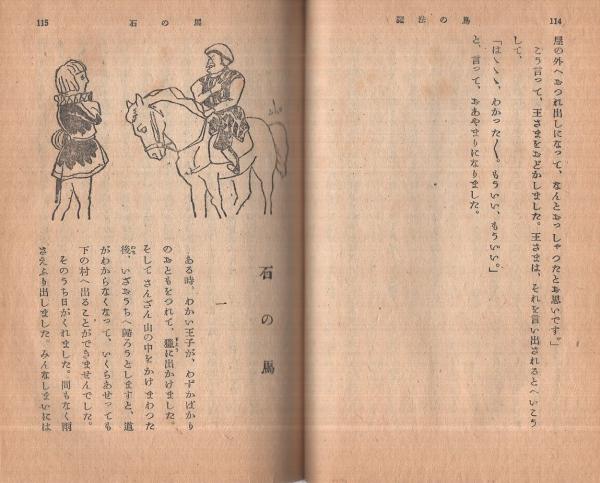 114
馬の法魔
屋の外へおつれ出しになって、なんとおっしゃったとお思いです。」
こう言って、王さまをおどかしました。王さまは、それを言い出されるとへいこう
して、
「はゝゝゝ、わかった〳〵。もういゝ、もういゝ。」
と、言って、おあやまりになりました。
115
石の馬
石の馬
一
ある時、わかい王子が、わずかばかり
のおともをつれて、獵に出かけました。
そしてさんざん山の中をかけまわった
後、いざおうちへ歸ろうとしますと、道
がわからなくなって、いくらあせっても
下の村へ出ることができませんでした。
そのうち日がくれました。間もなく雨
さえふり出しました。みんなしまいには